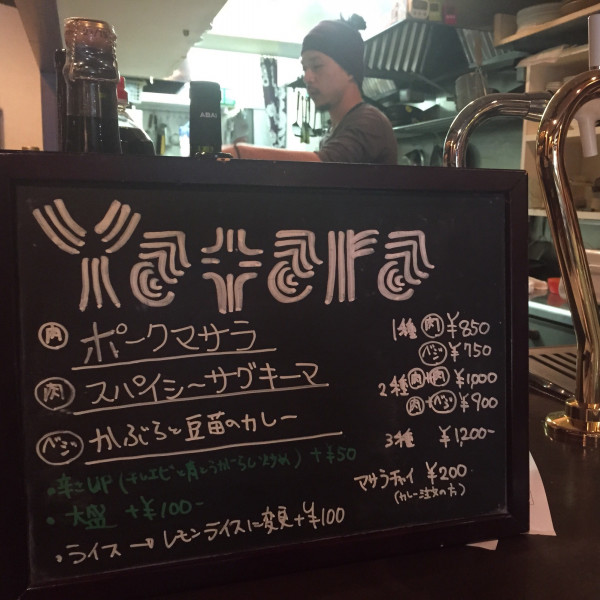 ABAI
Yatara
肉 ポークマサラ
肉 スパイシーサグキーマ
ベジ かぶらと豆苗のカレー
・辛さUP (干しエビと青とうがらし炒め) +¥50
・大盛 +¥100-
・ライス→レモンライスに変更+¥100
1種 肉 ¥850
ベジ ¥750
2種 肉+肉 ¥1,000
肉+ベジ ¥900
3種 ¥1200-
マサラチャイ ¥200
(カレー注文の方)